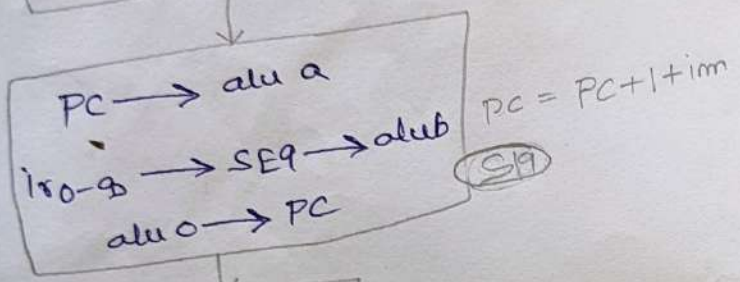 PC → alu a
ir0-8 → SE9 → alub
alu o → PC
PC = PC+1+imm
S19